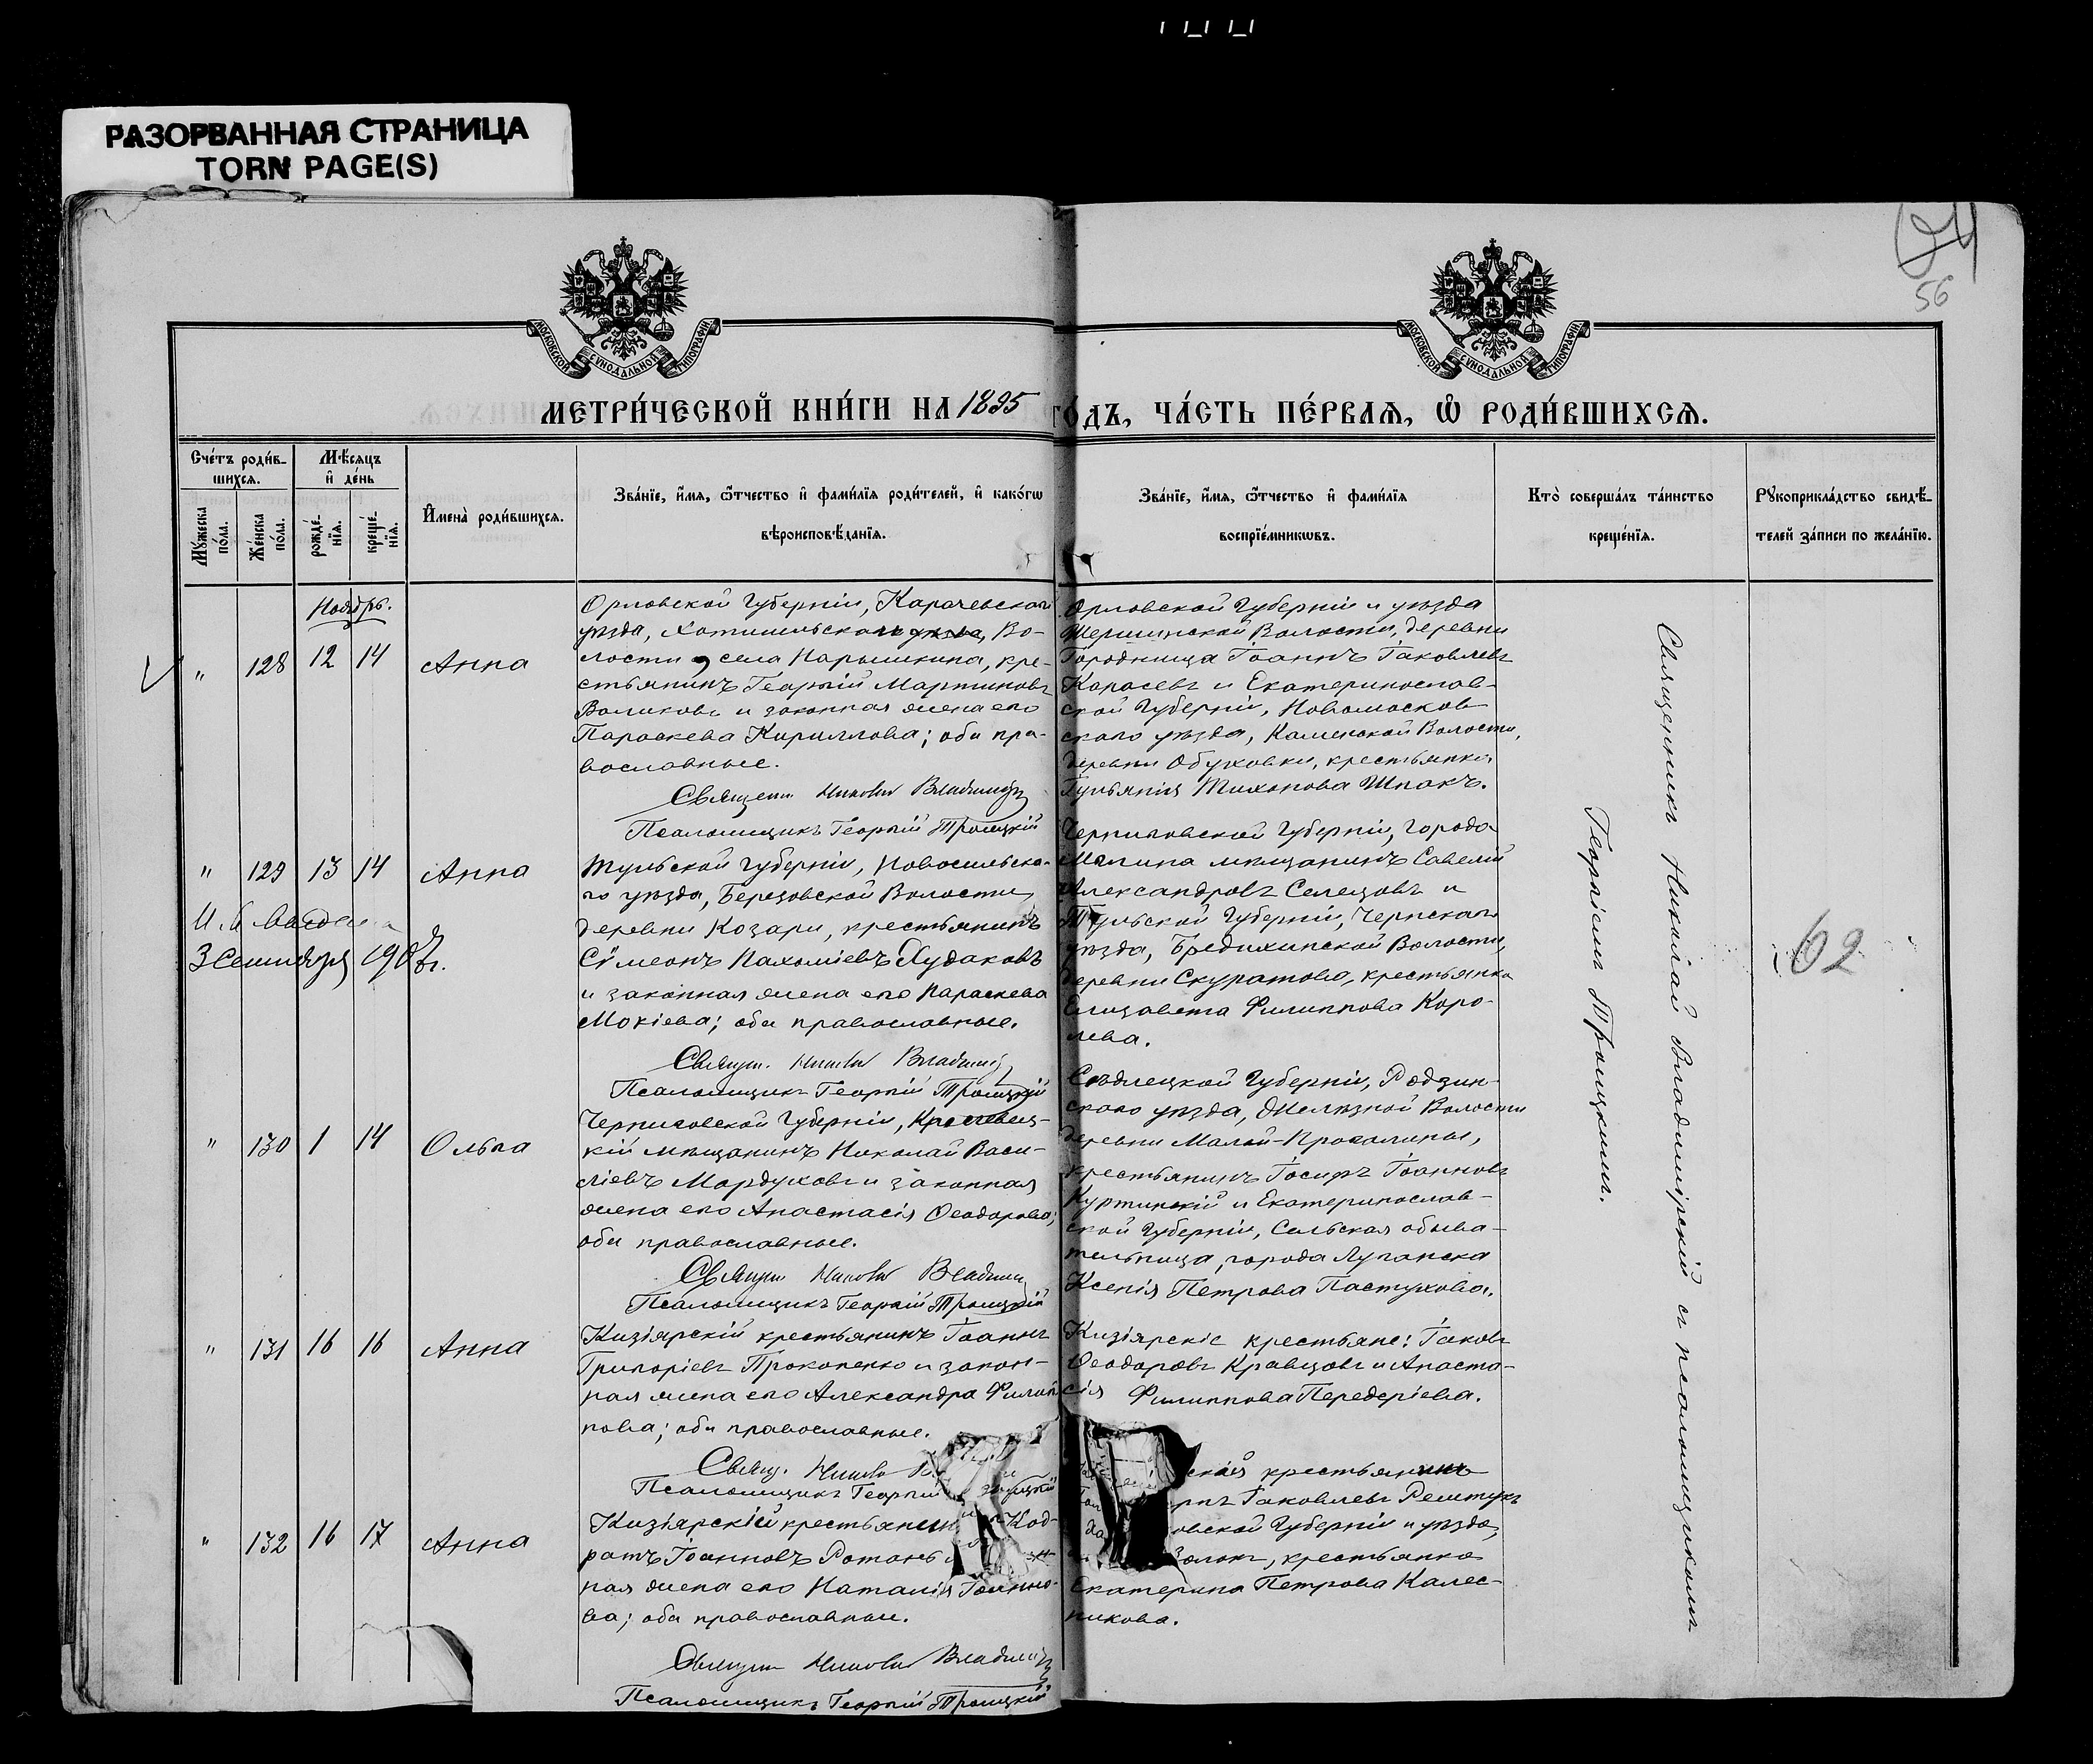 РАЗОРВАННАЯ СТРАНИЦА
TORN PAGE(S)
24
56
МОСКОВСКОЙ СѴНОДАЛЬНОЙ ТИПОГРАФІИ
МОСКОВСКОЙ СѴНОДАЛЬНОЙ ТИПОГРАФІИ
МЕТРИ́ЧЕСКОЙ КНИ́ГИ НА 1895 ГО́ДЪ, ЧА́СТЬ ПЕ́РВАѦ, Ѽ РОДИ́ВШИХСѦ.
Сче́тъ роди́в-
шихсѧ.
Мꙋ́жеска по́ла.
Же́нска по́ла.
Мѣ́сѧцъ и҆ де́нь
рожде́-нїѧ.
креще́-нїѧ.
И҆мена̀ роди́вшихсѧ.
Зва́нїе, и҆́мѧ, ѻ҆́тчество и҆ фами́лїѧ роди́телей, и҆ како́гѡ
вѣроисповѣ́данїѧ.
Зва́нїе, и҆́мѧ, ѻ҆́тчество и҆ фами́лїѧ
воспрїе́мникѡвъ.
Кто̀ соверша́лъ та́инство
креще́нїѧ.
Рꙋкоприкла́дство свидѣ́-
телей за́писи по жела́нїю.
Ноябрь.
" 128 12 14 Анна
Орловской Губерніи, Карачевскаго
уѣзда, Хотимльской Во-
лости, села Нарышкина, кре-
стьянинъ Георгій Мартиновъ
Воликовъ и законная жена его
Параскева Кириллова; оба пра-
вославные.
Священ. Николай Владимір
Псаломщикъ Георгій Троицкій
Орловской Губерніи и уѣзда
Волости, деревни
Городища Іоаннъ Іаковлевъ
Карасевъ и Екатеринослав-
ской Губерніи, Новомосков
скаго уѣзда, Каменской Волости,
деревни Обуховки, крестьянка
Іуліанія Тихонова Шпакъ.
" 129 13 14 Анна
3 Сентября
Тульской Губерніи, Новосильска-
го уѣзда, Березовской Волости,
деревни Козари, крестьянинъ
Сѵмеонъ Пахоміевъ Худаковъ
и законная жена его Параскева
Мокіева; оба православные.
Священ. Николай Владимір
Псаломщикъ Георгій Троицкій
Черниговской Губерніи, города
Мглина мѣщанинъ Савелій
Александровъ Селецовъ и
Тульской Губерніи, Чернскаго
уѣзда, Бредихинской Волости,
деревни Скуратова, крестьянка
Елизавета Филиппова Коро-
лева.
" 130 1 14 Ольга
Черниговской Губерніи, Кролевец-
кій мѣщанинъ Николай Васи-
ліевъ Мордуховъ и законная
жена его Анастасія Ѳеодорова;
оба православные.
Священ Николай Владимі
Псаломщикъ Георгій Троицкій
Сѣдлецкой Губерніи, Радзин-
скаго уѣзда, Желѣзной Волости
деревни Малой-Прогалины,
крестьянинъ Іосифъ Іоанновъ
Куртинскій и Екатеринослав-
ской Губерніи, Сельская обыва-
тельница, города Луганска
Ксенія Петрова Пастухова.
" 131 16 16 Анна
Кизіярскій крестьянинъ Іоаннъ
Григоріевъ Прокопенко и закон-
ная жена его Александра Филип
пова; оба православные.
Свящ. Николай
Псаломщикъ Георгій
Кизіярскіе крестьяне: Іаковъ
Ѳеодоровъ Кравцовъ и Анаста-
сія Филиппова Передеріева.
" 132 16 17 Анна
Кизіярскій крестьянин Код-
ратъ Іоанновъ Ротань
ная жена его Наталія Іоанно-
ва; оба православные.
Священ Николай Владимір
Псаломщикъ Георгій Троицкій
скій крестьянинъ
Іаковлевъ Решту
овской Губерніи и уѣзда,
крестьянка
Екатерина Петрова Колес-
никова.
Священникъ Николай Владимірскій съ псаломщикомъ
Георгіемъ Троицкимъ.
62